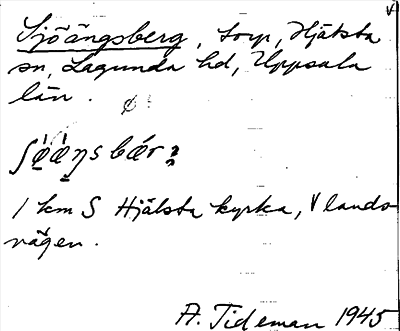 Sjöängsberg, torp, Hjälsta
sn, Lagunda hd, Uppsala
län.
1 km S Hjälsta kyrka, V lands-
vägen.
A. Tideman 1945